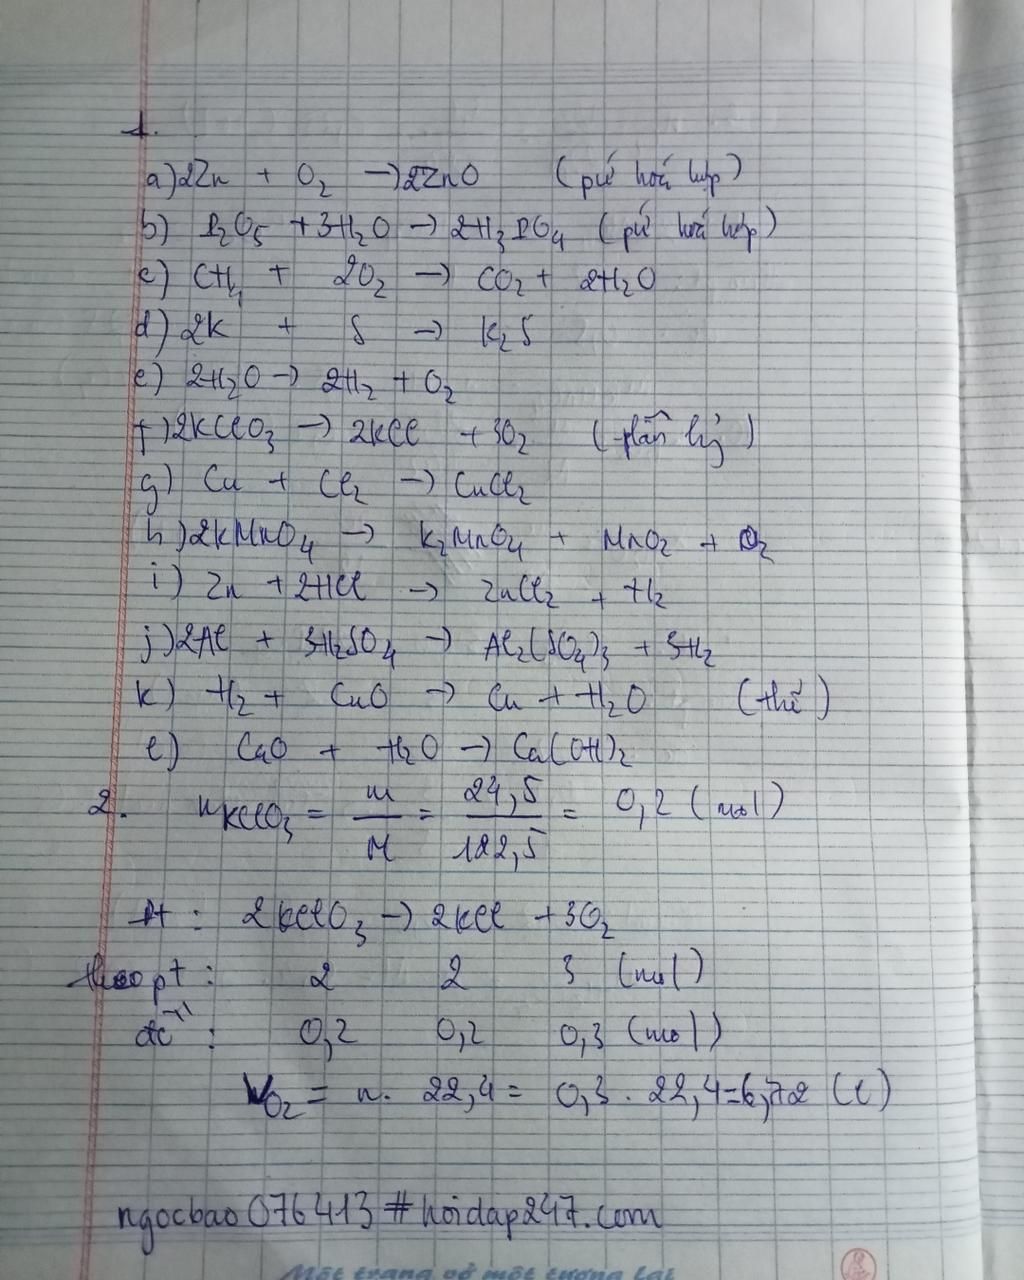 1.
a) 2Zn + O₂ → 2ZnO (pứ hoá hợp)
b) P₂O₅ + 3H₂O → 2H₃PO₄ (pứ hoá hợp)
c) CH₄ + 2O₂ → CO₂ + 2H₂O
d) 2K + S → K₂S
e) 2H₂O → 2H₂ + O₂
f) 2KClO₃ → 2KCl + 3O₂ (phân hủy)
g) Cu + Cl₂ → CuCl₂
h) 2KMnO₄ → K₂MnO₄ + MnO₂ + O₂
i) Zn + 2HCl → ZnCl₂ + H₂
j) 2Al + 3H₂SO₄ → Al₂(SO₄)₃ + 3H₂
k) H₂ + CuO → Cu + H₂O (thế)
l) CaO + H₂O → Ca(OH)₂
2. nKClO₃ = m/M = 24,5/122,5 = 0,2 (mol)
Pt : 2KClO₃ → 2KCl + 3O₂
theo pt : 2 2 3 (mol)
0,2 0,2 0,3 (mol)
VO₂ = n. 22,4 = 0,3 . 22,4 = 6,72 (l)
ngocbao076413#hoidap247.com
Một trang vở một tương lai